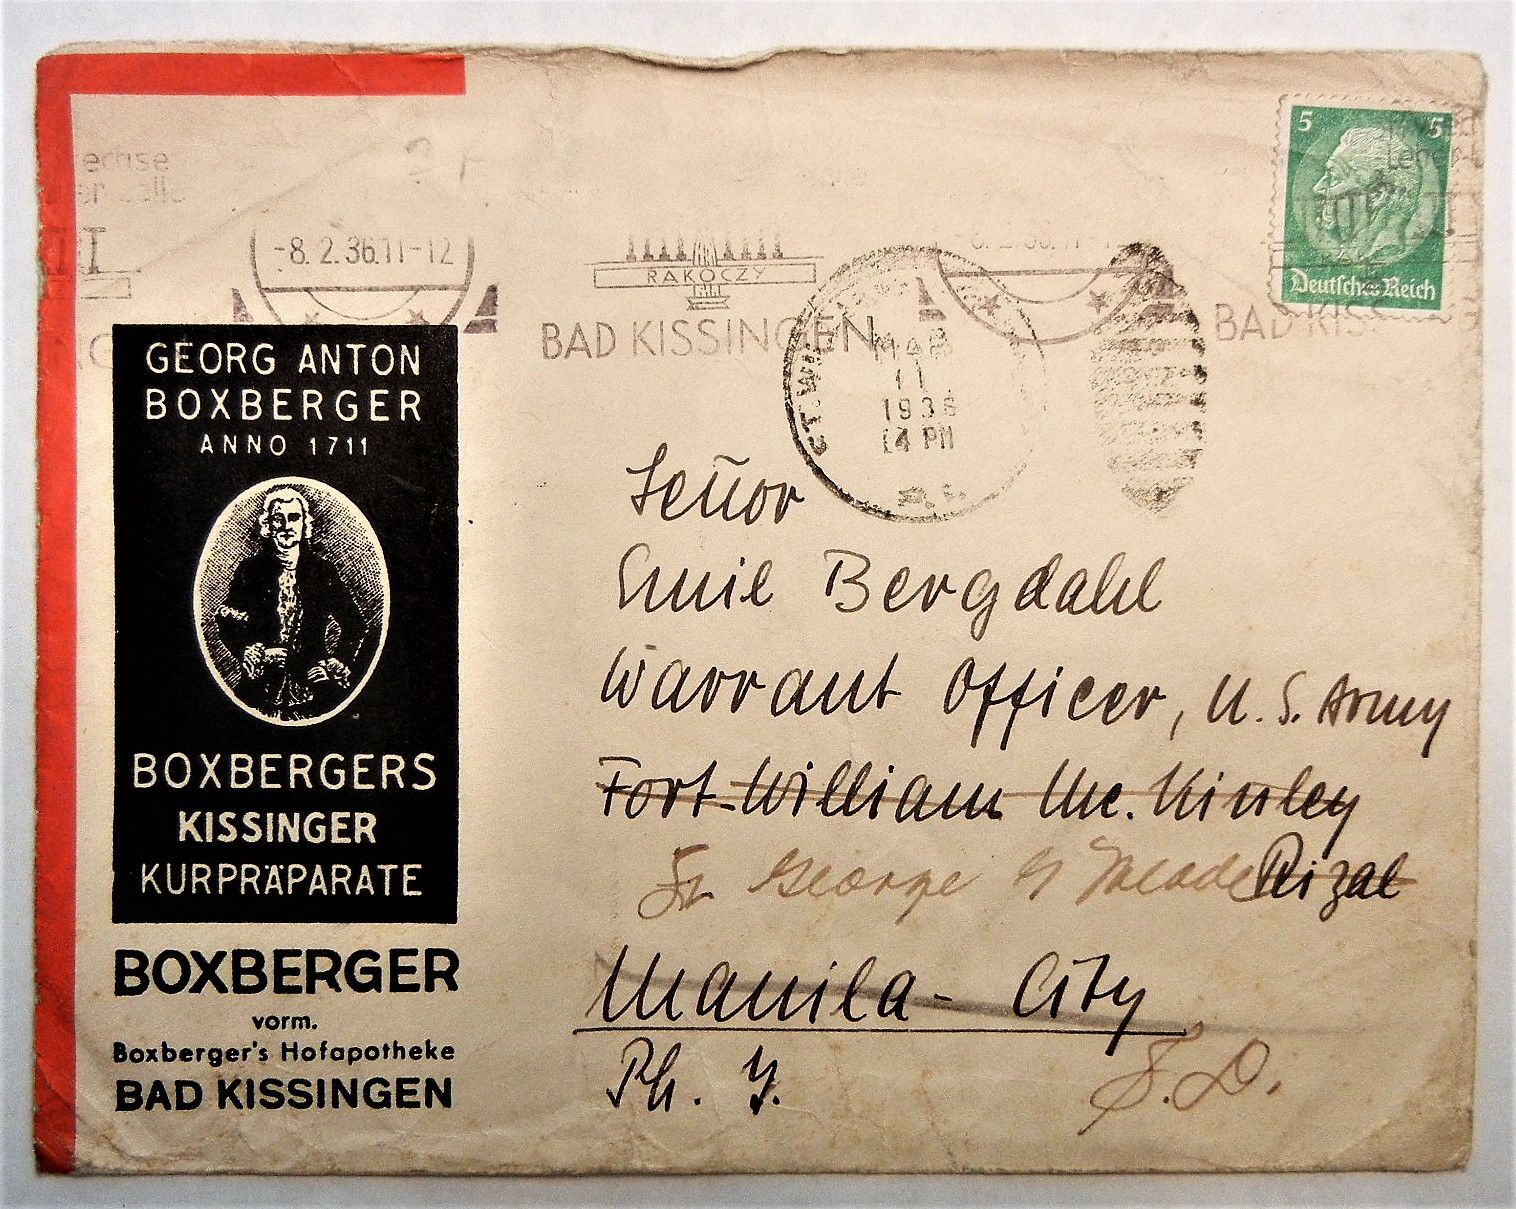 5 5
Deutsches Reich
echse
-8. 2. 36.11-12
RAKOCZY
BAD KISSINGEN
BAD KISS
MAR
11
1936
4 PM
GEORG ANTON
BOXBERGER
ANNO 1711
BOXBERGERS
KISSINGER
KURPRÄPARATE
BOXBERGER
vorm.
Boxberger's Hofapotheke
BAD KISSINGEN
Señor
Emil Bergdahl
Warrant Officer, U. S. Army
Fort William Mc. Kinley
Ft George G Meade Rizal
Manila - City
Ph. I.
S.D.